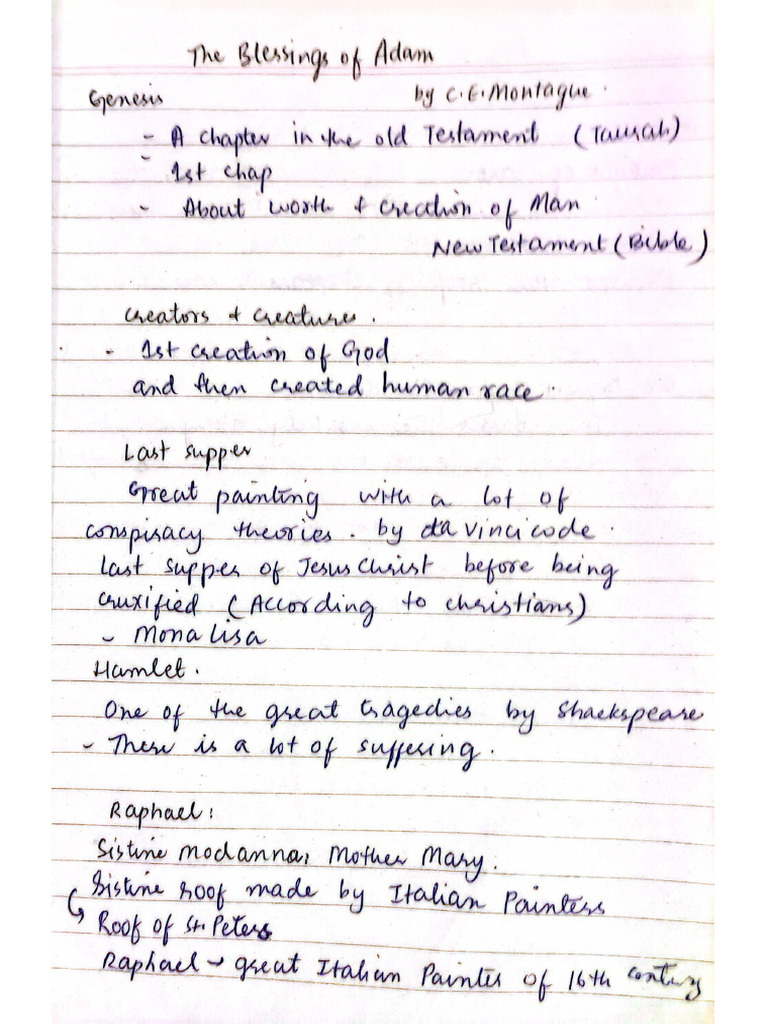 The Blessings of Adam
Genesis by C.E. Montague.
- A chapter in the old Testament (Taurah)
- 1st chap
- About worth & creation of Man
New Testament (Bible)
Creators & creatures.
- 1st creation of God
and then created human race.
Last supper
Great painting with a lot of
conspiracy theories. by da vinci code.
Last supper of Jesus Christ before being
cruxified (According to christians)
- Mona lisa
Hamlet.
One of the great tragedies by Shaekspeare
- There is a lot of suffering.
Raphael:
Sistine Modanna, Mother Mary.
Sistine roof made by Italian Painters
Roof of St. Peters
Raphael → great Italian Painter of 16th century